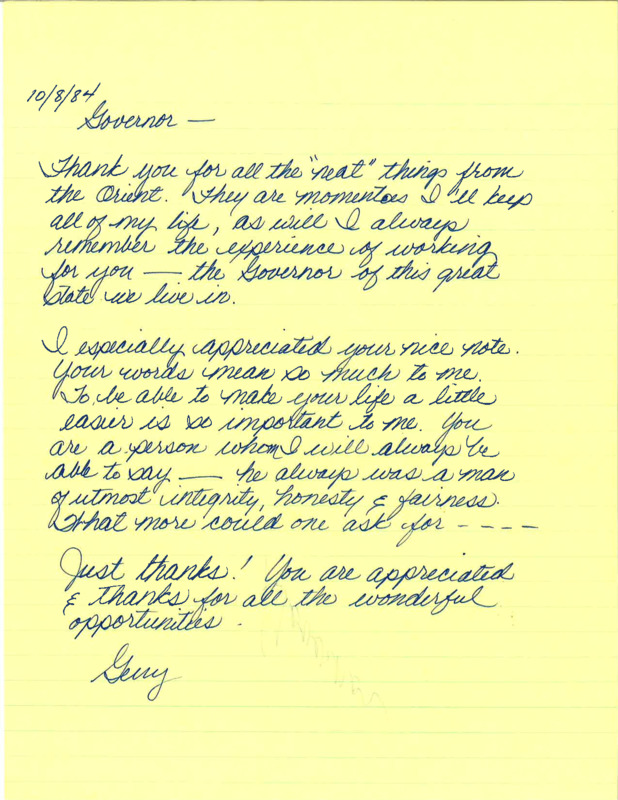 10/8/84
Governor —
Thank you for all the "neat" things from
the Orient. They are momentoes I'll keep
all of my life, as will I always
remember the experience of working
for you — the Governor of this great
State we live in.
I especially appreciated your nice note.
Your words mean so much to me.
To be able to make your life a little
easier is so important to me. You
are a person whom I will always be
able to say — he always was a man
of utmost integrity, honesty & fairness.
What more could one ask for - - - -
Just thanks! You are appreciated
& thanks for all the wonderful
opportunities.
Gerry